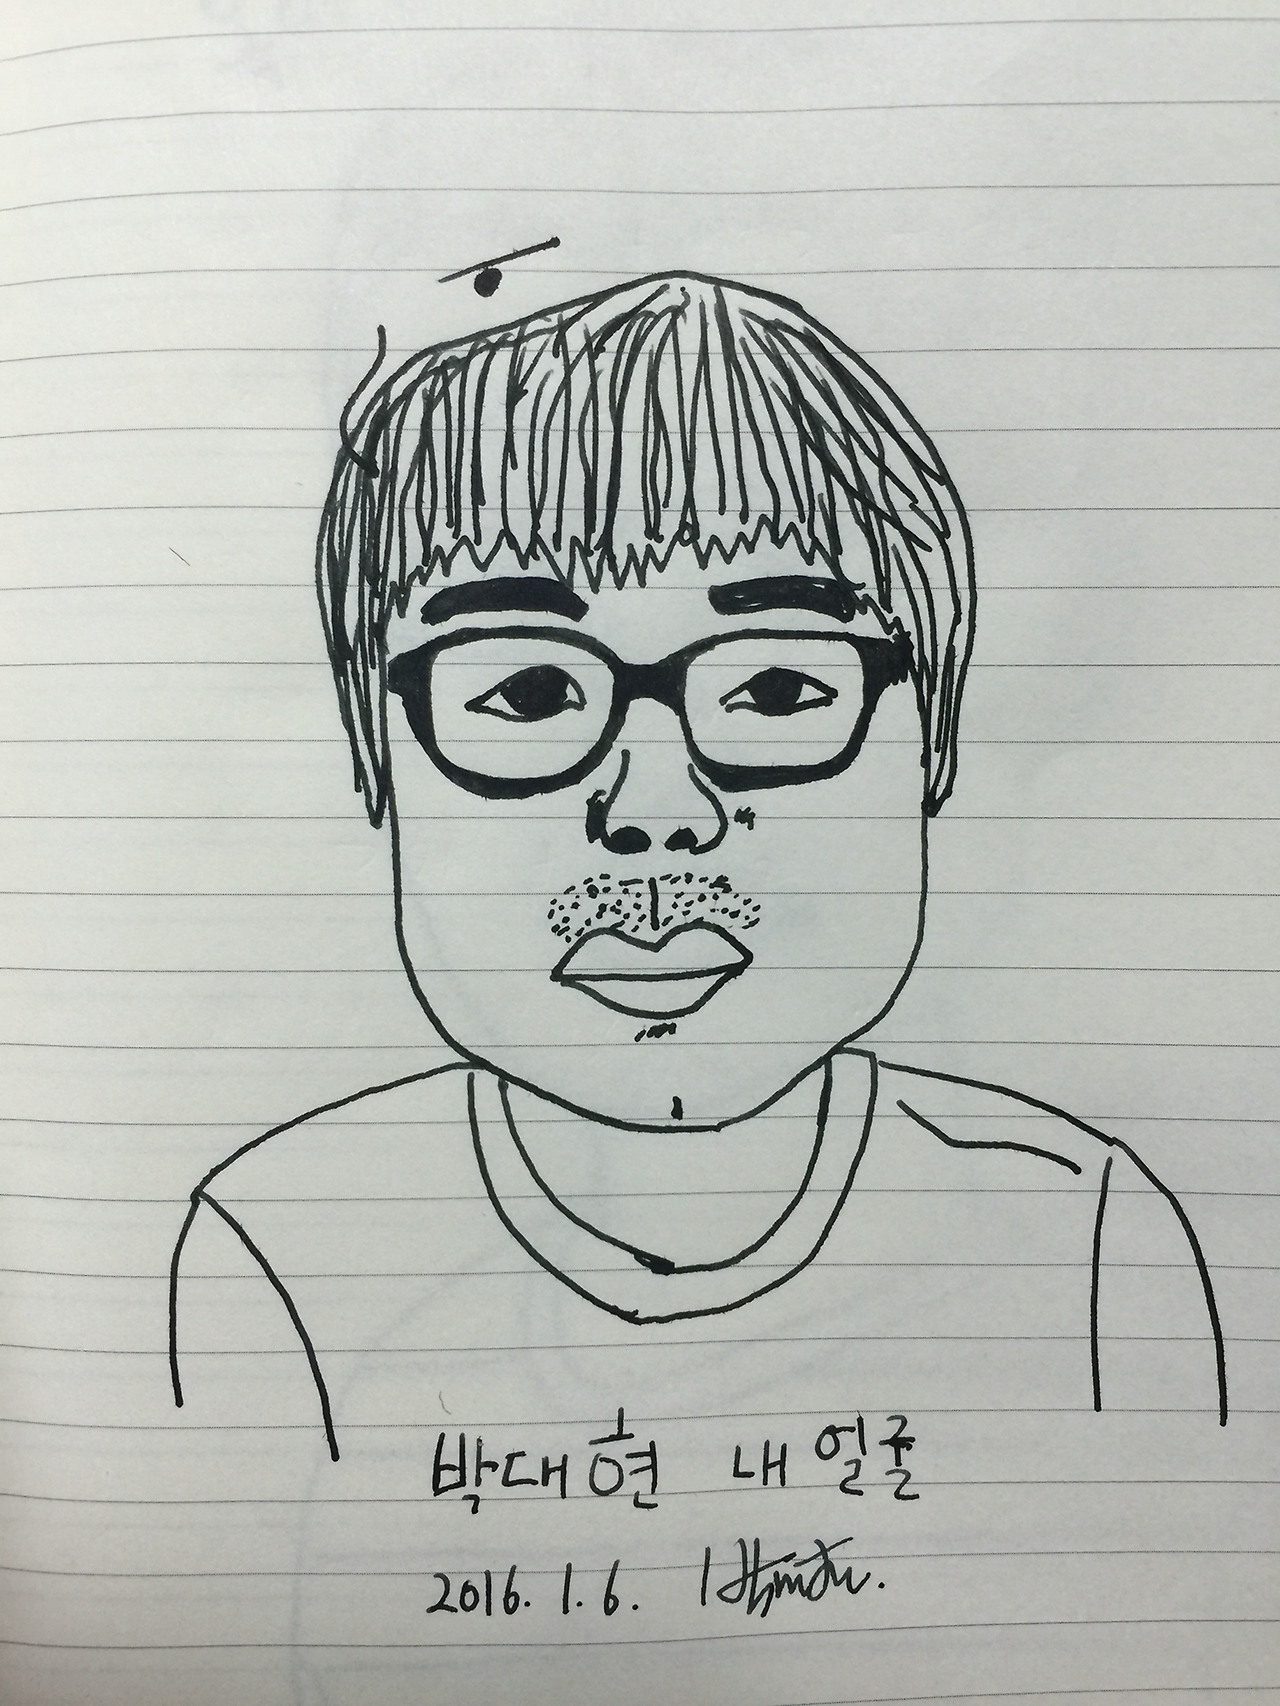 박대현 내 얼굴
2016. 1. 6.